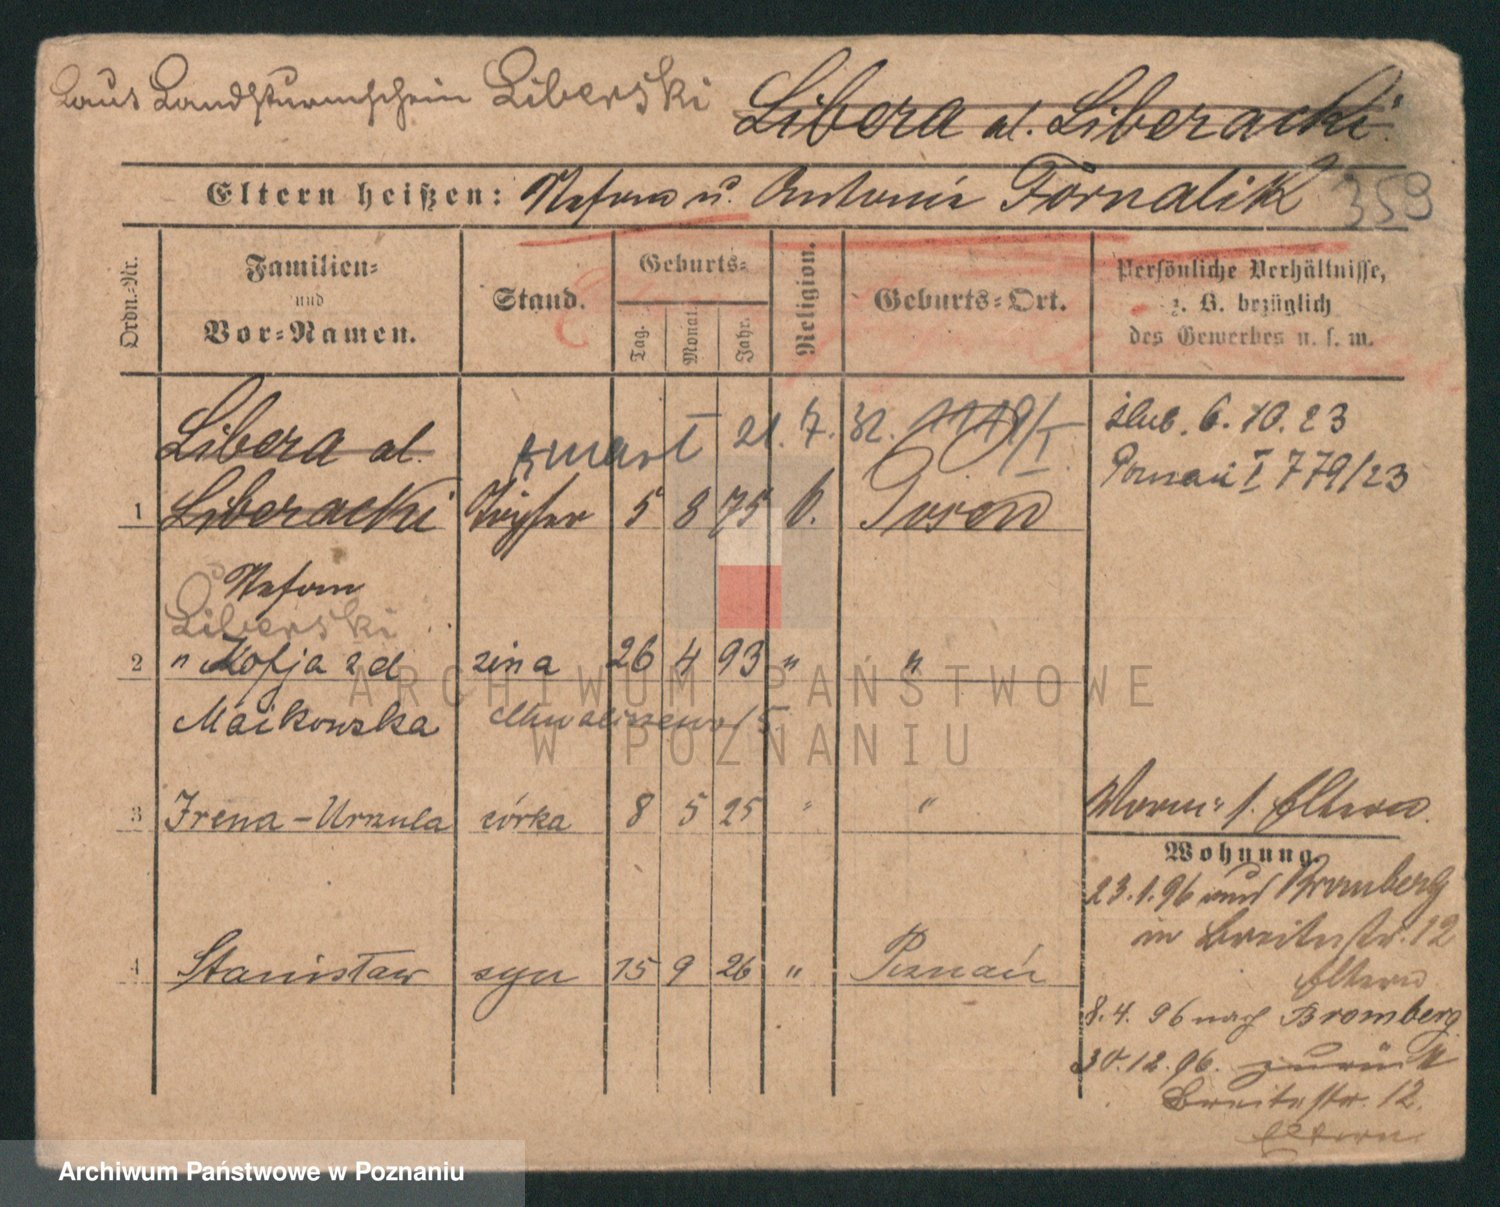 Laut Landsturmschein Liberski
Libera al. Liberacki
Eltern heißen: Stefan u. Antonie Fornalik
359
Ordn.-Nr.
Familien-
und
Vor-Namen.
Stand.
Geburts-
Tag.
Monat.
Jahr.
Religion.
Geburts-Ort.
Persönliche Verhältnisse,
z. B. bezüglich
des Gewerbes u. s. w.
Libera al.
zmarł 21.7.32.
ślub. 6.10.23
Poznań I 779/23
1 Liberacki Töpfer 5 8 75 k. Posen
Stefan
Liberski
2 " Zofja zd żona 26 4 93 " "
Maikowska
3 Irena-Urszula córka 8 5 25 " "
Eltern
Wohnung.
23.1.96 Bromberg
in Breitestr. 12
Eltern
4 Stanisław syn 15 9 26 " Poznań
8.4.96 nach Bromberg
30.12.96. zurück
Breitestr. 12.
Eltern
ARCHIWUM PAŃSTWOWE
W POZNANIU
Archiwum Państwowe w Poznaniu